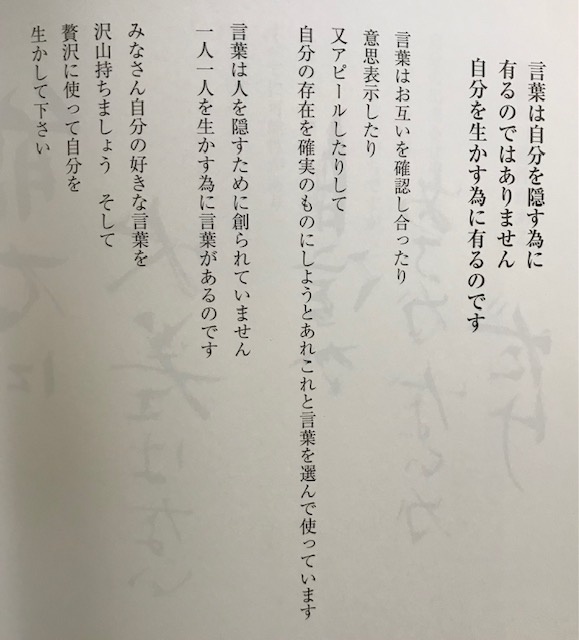 言葉は自分を隠す為に
有るのではありません
自分を生かす為に有るのです
言葉はお互いを確認し合ったり
意思表示したり
又アピールしたりして
自分の存在を確実のものにしようとあれこれと言葉を選んで使っています
言葉は人を隠すために創られていません
一人一人を生かす為に言葉があるのです
みなさん自分の好きな言葉を
沢山持ちましょう　そして
贅沢に使って自分を
生かして下さい